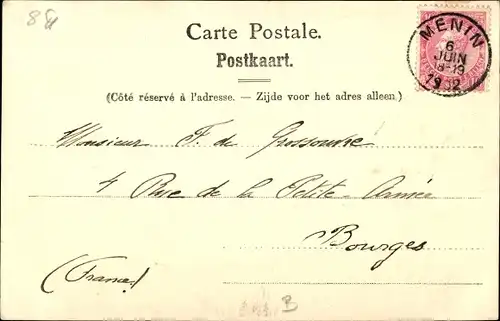 Carte Postale.
Postkaart.
(Côté réservé à l'adresse. — Zijde voor het adres alleen.)
MENIN
6
JUIN
18-19
Monsieur F. de Grossouvre
4 Rue de la Petite-Armée
Bourges
(France)
B